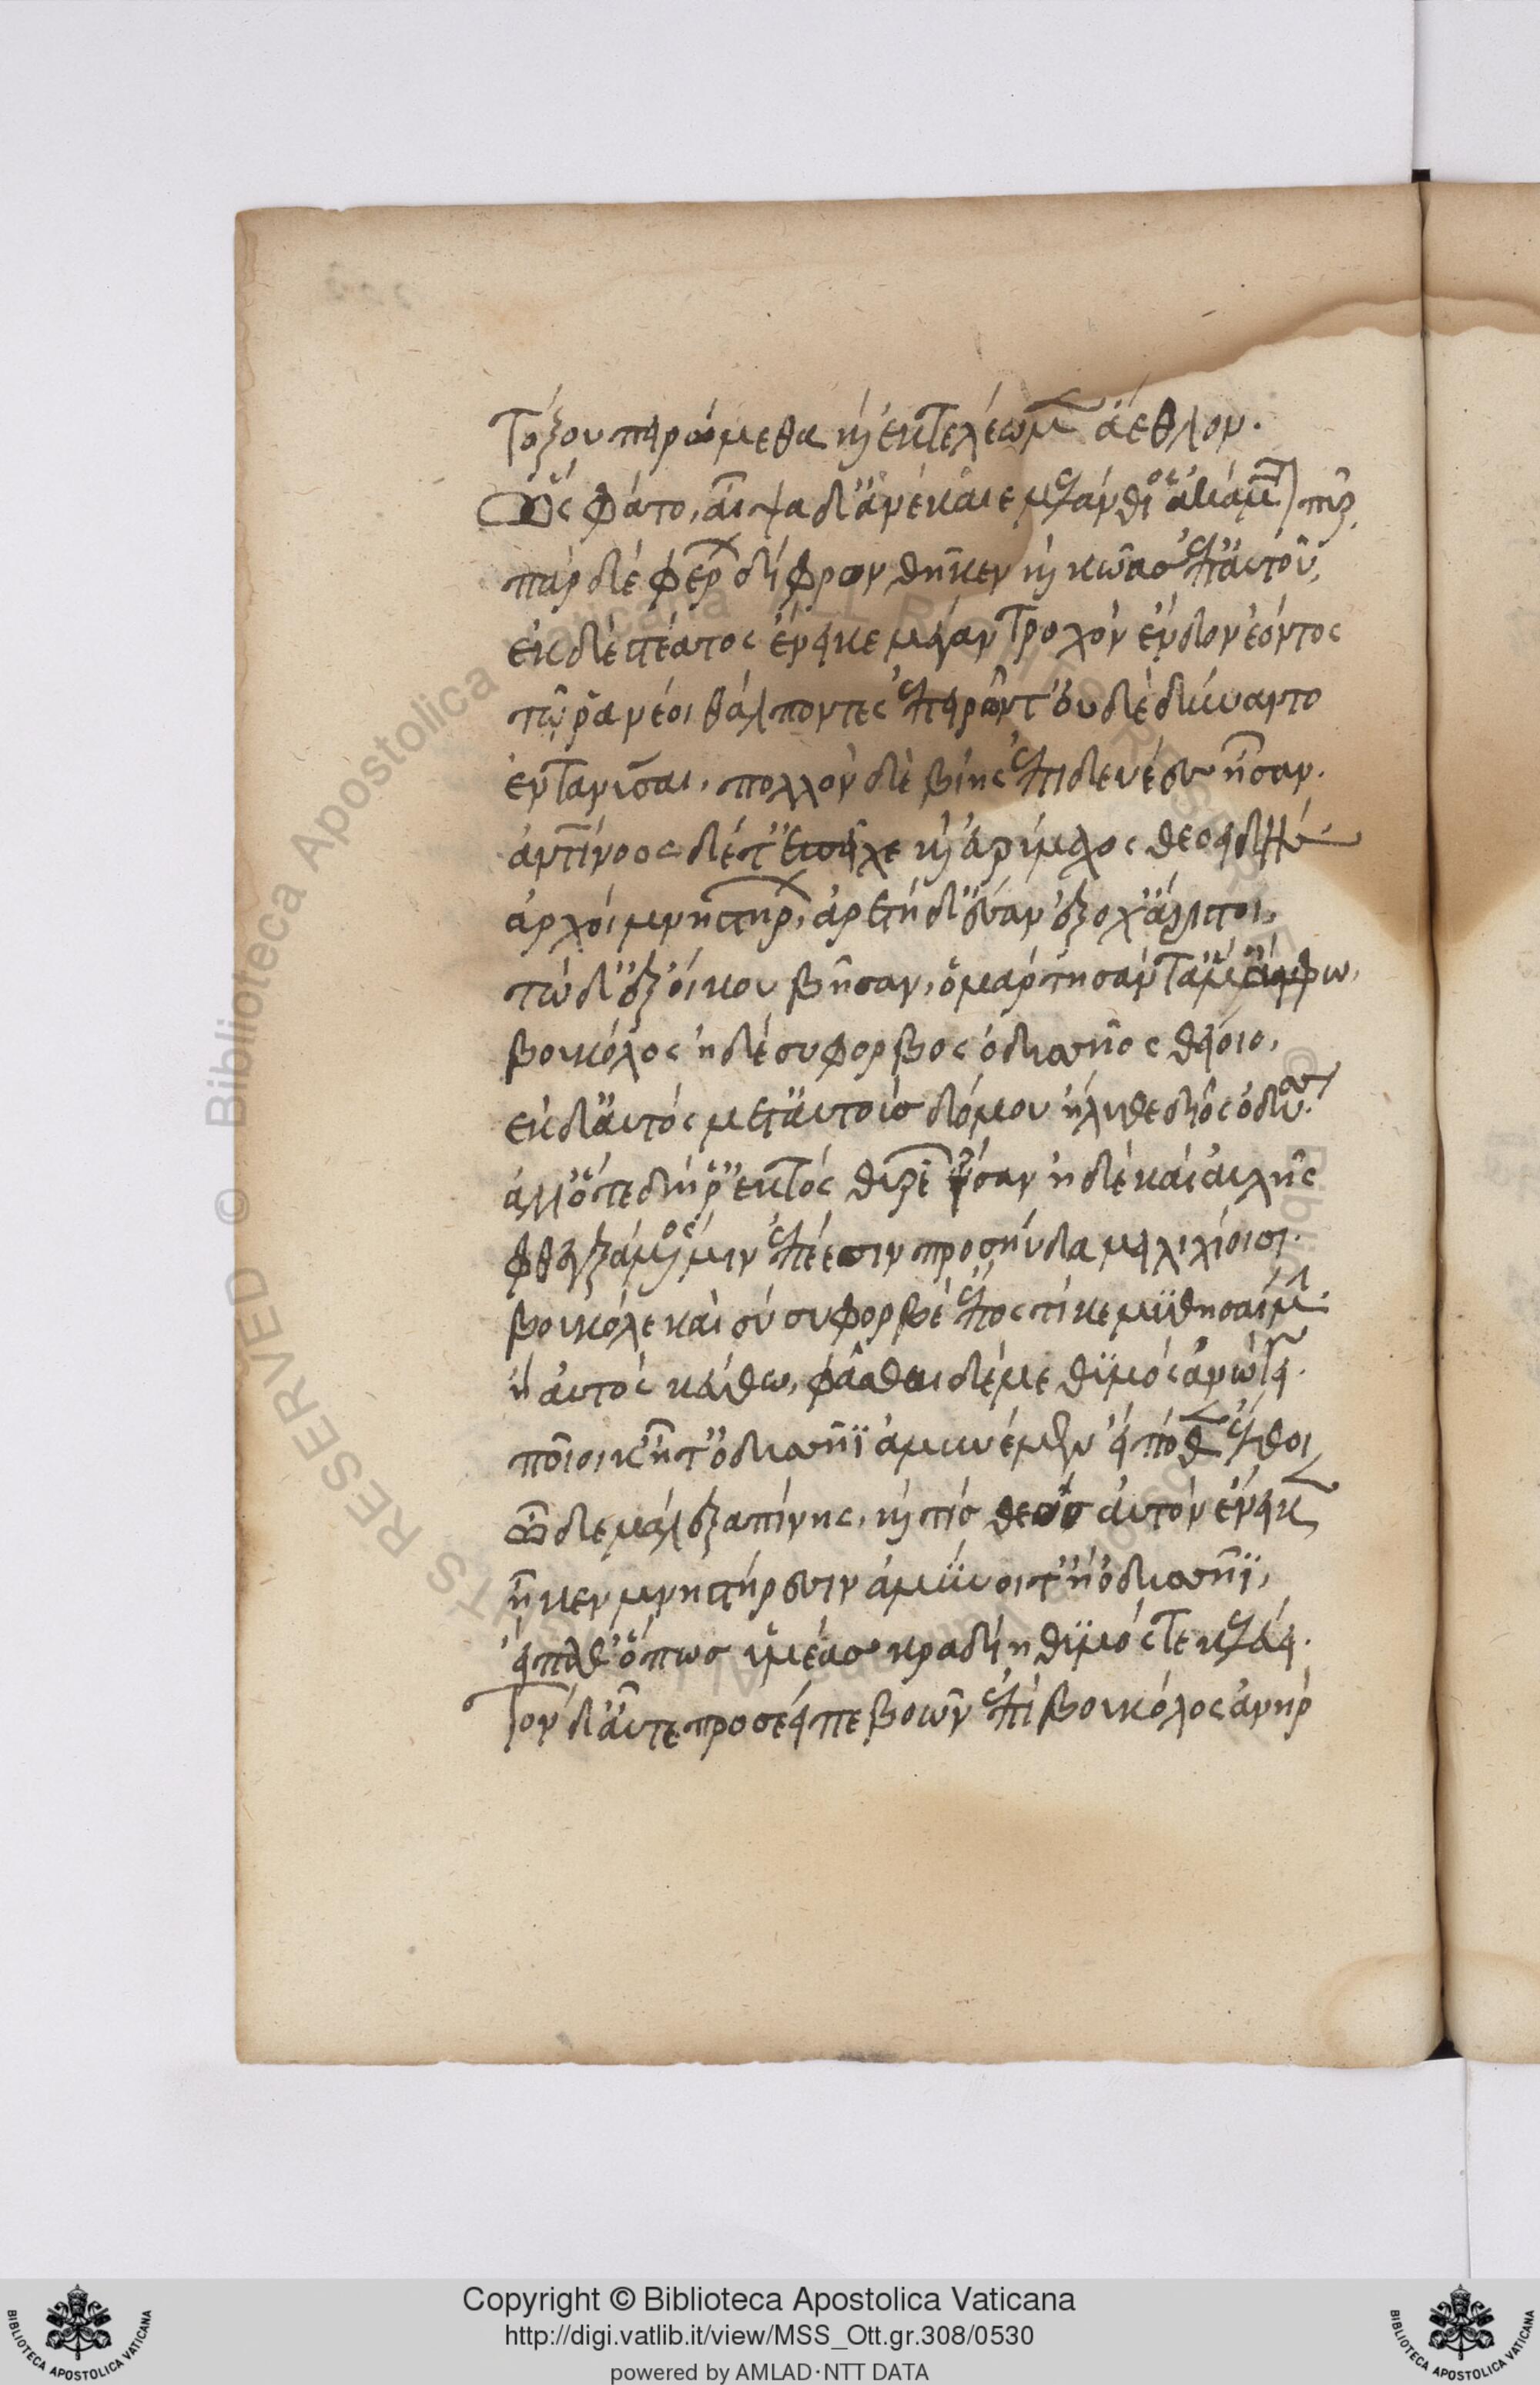 τόξου πειρώμεθα καὶ ἐκτελέωμεν ἄεθλον.
Ὣς φάτο, αἶψα δ' ἀνέκαιε μελάνθιος ἀκάματον πῦρ,
πὰρ δὲ φέρων δίφρον θῆκεν καὶ κῶας ἐπ' αὐτοῦ,
ἐκ δὲ στέατος ἔνεικε μέγαν τροχὸν ἔνδον ἐόντος
τῷ ῥα νέοι θάλποντες ἐπειρῶντ' οὐδὲ δύναντο
ἐντανύσαι, πολλὸν δὲ βίης ἐπιδευέες ἦσαν.
ἀντίνοος δ' ἔτ' ἐπεῖχε καὶ εὐρύμαχος θεοειδὴς
ἀρχοὶ μνηστήρων, ἀρετῇ δ' ἔσαν ἔξοχ' ἄριστοι,
τὼ δ' ἐξ οἴκου βῆσαν, ὁμαρτήσαντες ἅμ' ἄμφω,
βουκόλος ἠδὲ συφορβὸς ὀδυσσῆος θείοιο,
ἐκ δ' αὐτὸς μετ' αὐτοὺς δόμου ἤλυθε δῖος ὀδυσσεύς.
ἀλλ' ὅτε δή ῥ' ἐκτὸς θυρέων ἔσαν ἠδὲ καὶ αὐλῆς
φθεγξάμενός μιν ἐπέεσσιν προσηύδα μειλιχίοισι.
βουκόλε καὶ σὺ συφορβὲ ἔπος τί κε μυθησαίμην.
ἢ αὐτὸς κεύθω, φάσθαι δέ με θυμὸς ἀνώγει.
ποῖοί κ' εἶτ' ὀδυσσῆϊ ἀμυνέμεν εἴ ποθεν ἔλθοι
ὧδε μάλ' ἐξαπίνης, καί τις θεὸς αὐτὸν ἐνείκαι
ἦ κεν μνηστήρεσσιν ἀμύνοιτ' ἢ ὀδυσσῆϊ,
εἴπαθ' ὅπως ὑμέας κραδίη θυμός τε κελεύει.
Τὸν δ' αὖτε προσέειπε βοῶν ἐπὶ βουκόλος ἀνήρ
Copyright © Biblioteca Apostolica Vaticana
http://digi.vatlib.it/view/MSS_Ott.gr.308/0530
powered by AMLAD·NTT DATA